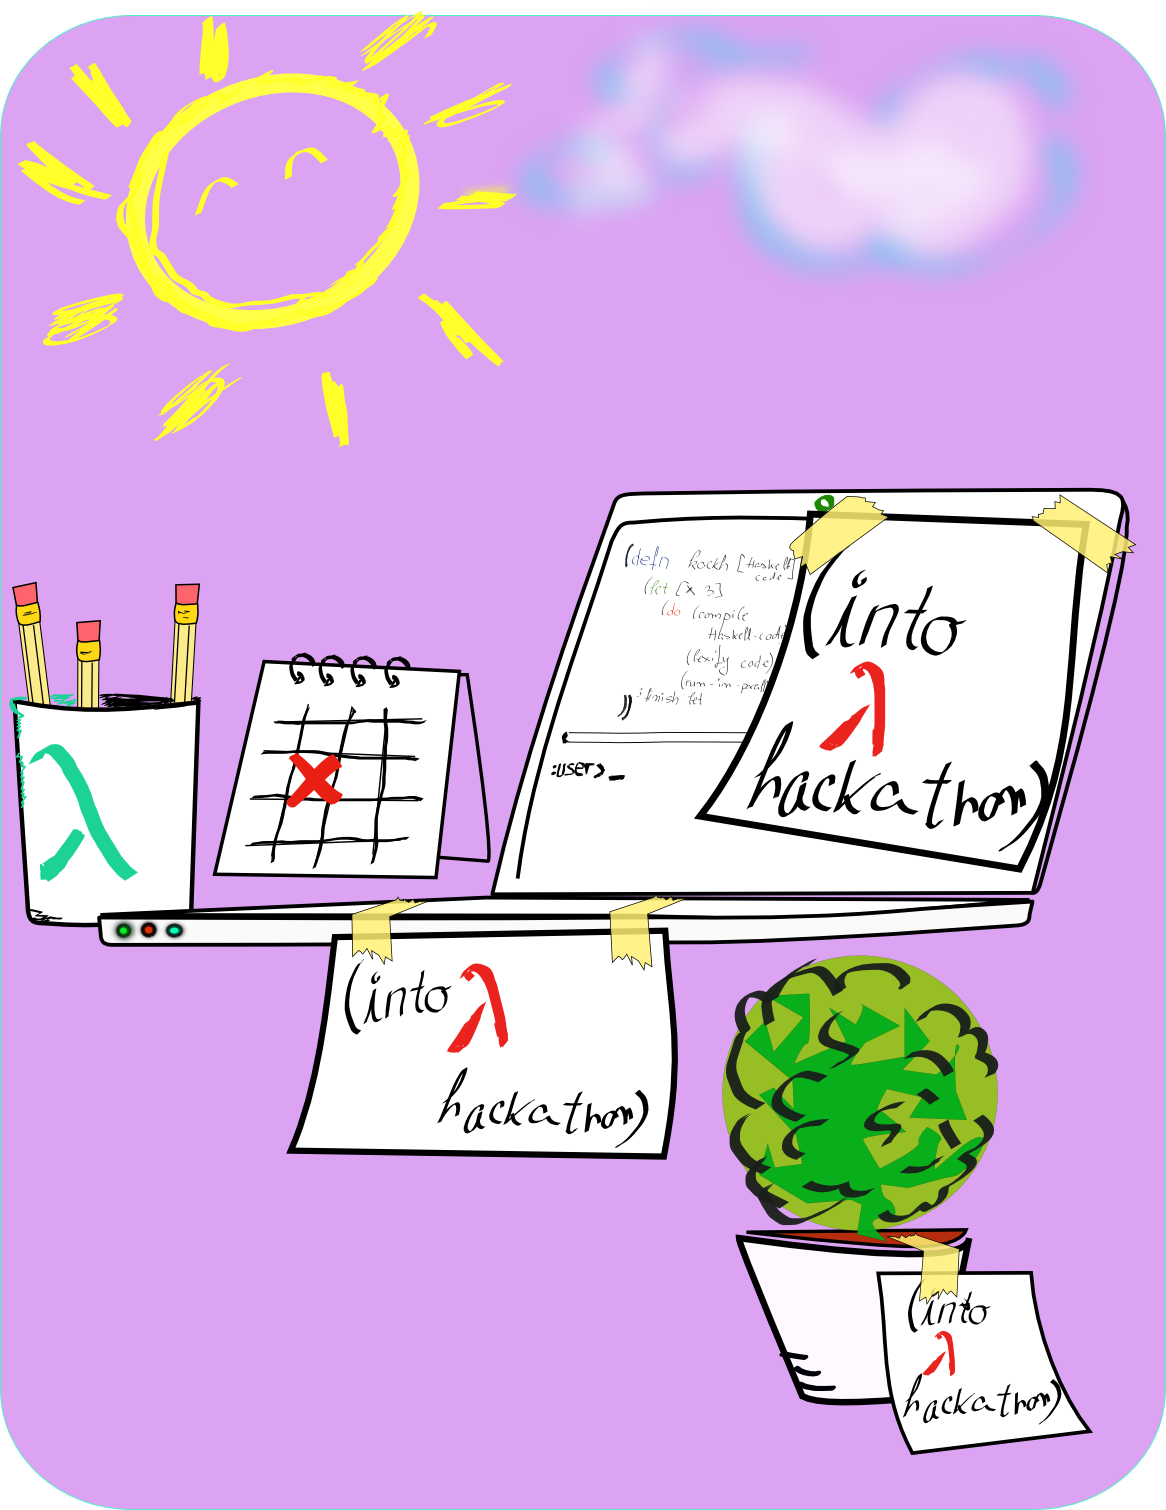 (defn kockh [Haskell
code]
(let [x 3]
(do (compile
Haskell-code
(lexify code)
(run-in-
;finish let
))
:user>_
(into
λ
hackathon)
λ
(into λ
hackathon)
(into
λ
hackathon)